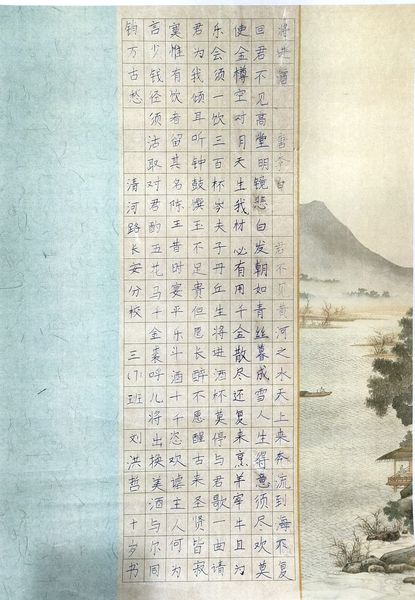 将进酒 唐李白 君不见黄河之水天上来奔流到海不复
回君不见高堂明镜悲白发朝如青丝暮成雪人生得意须尽欢莫
使金樽空对月天生我材必有用千金散尽还复来烹羊宰牛且为
乐会须一饮三百杯岑夫子丹丘生将进酒杯莫停与君歌一曲请
君为我倾耳听钟鼓馔玉不足贵但愿长醉不愿醒古来圣贤皆寂
寞惟有饮者留其名陈王昔时宴平乐斗酒十千恣欢谑主人何为
言少钱径须沽取对君酌五花马千金裘呼儿将出换美酒与尔同
销万古愁 清河路长安分校 三(7)班 刘洪哲 十岁书